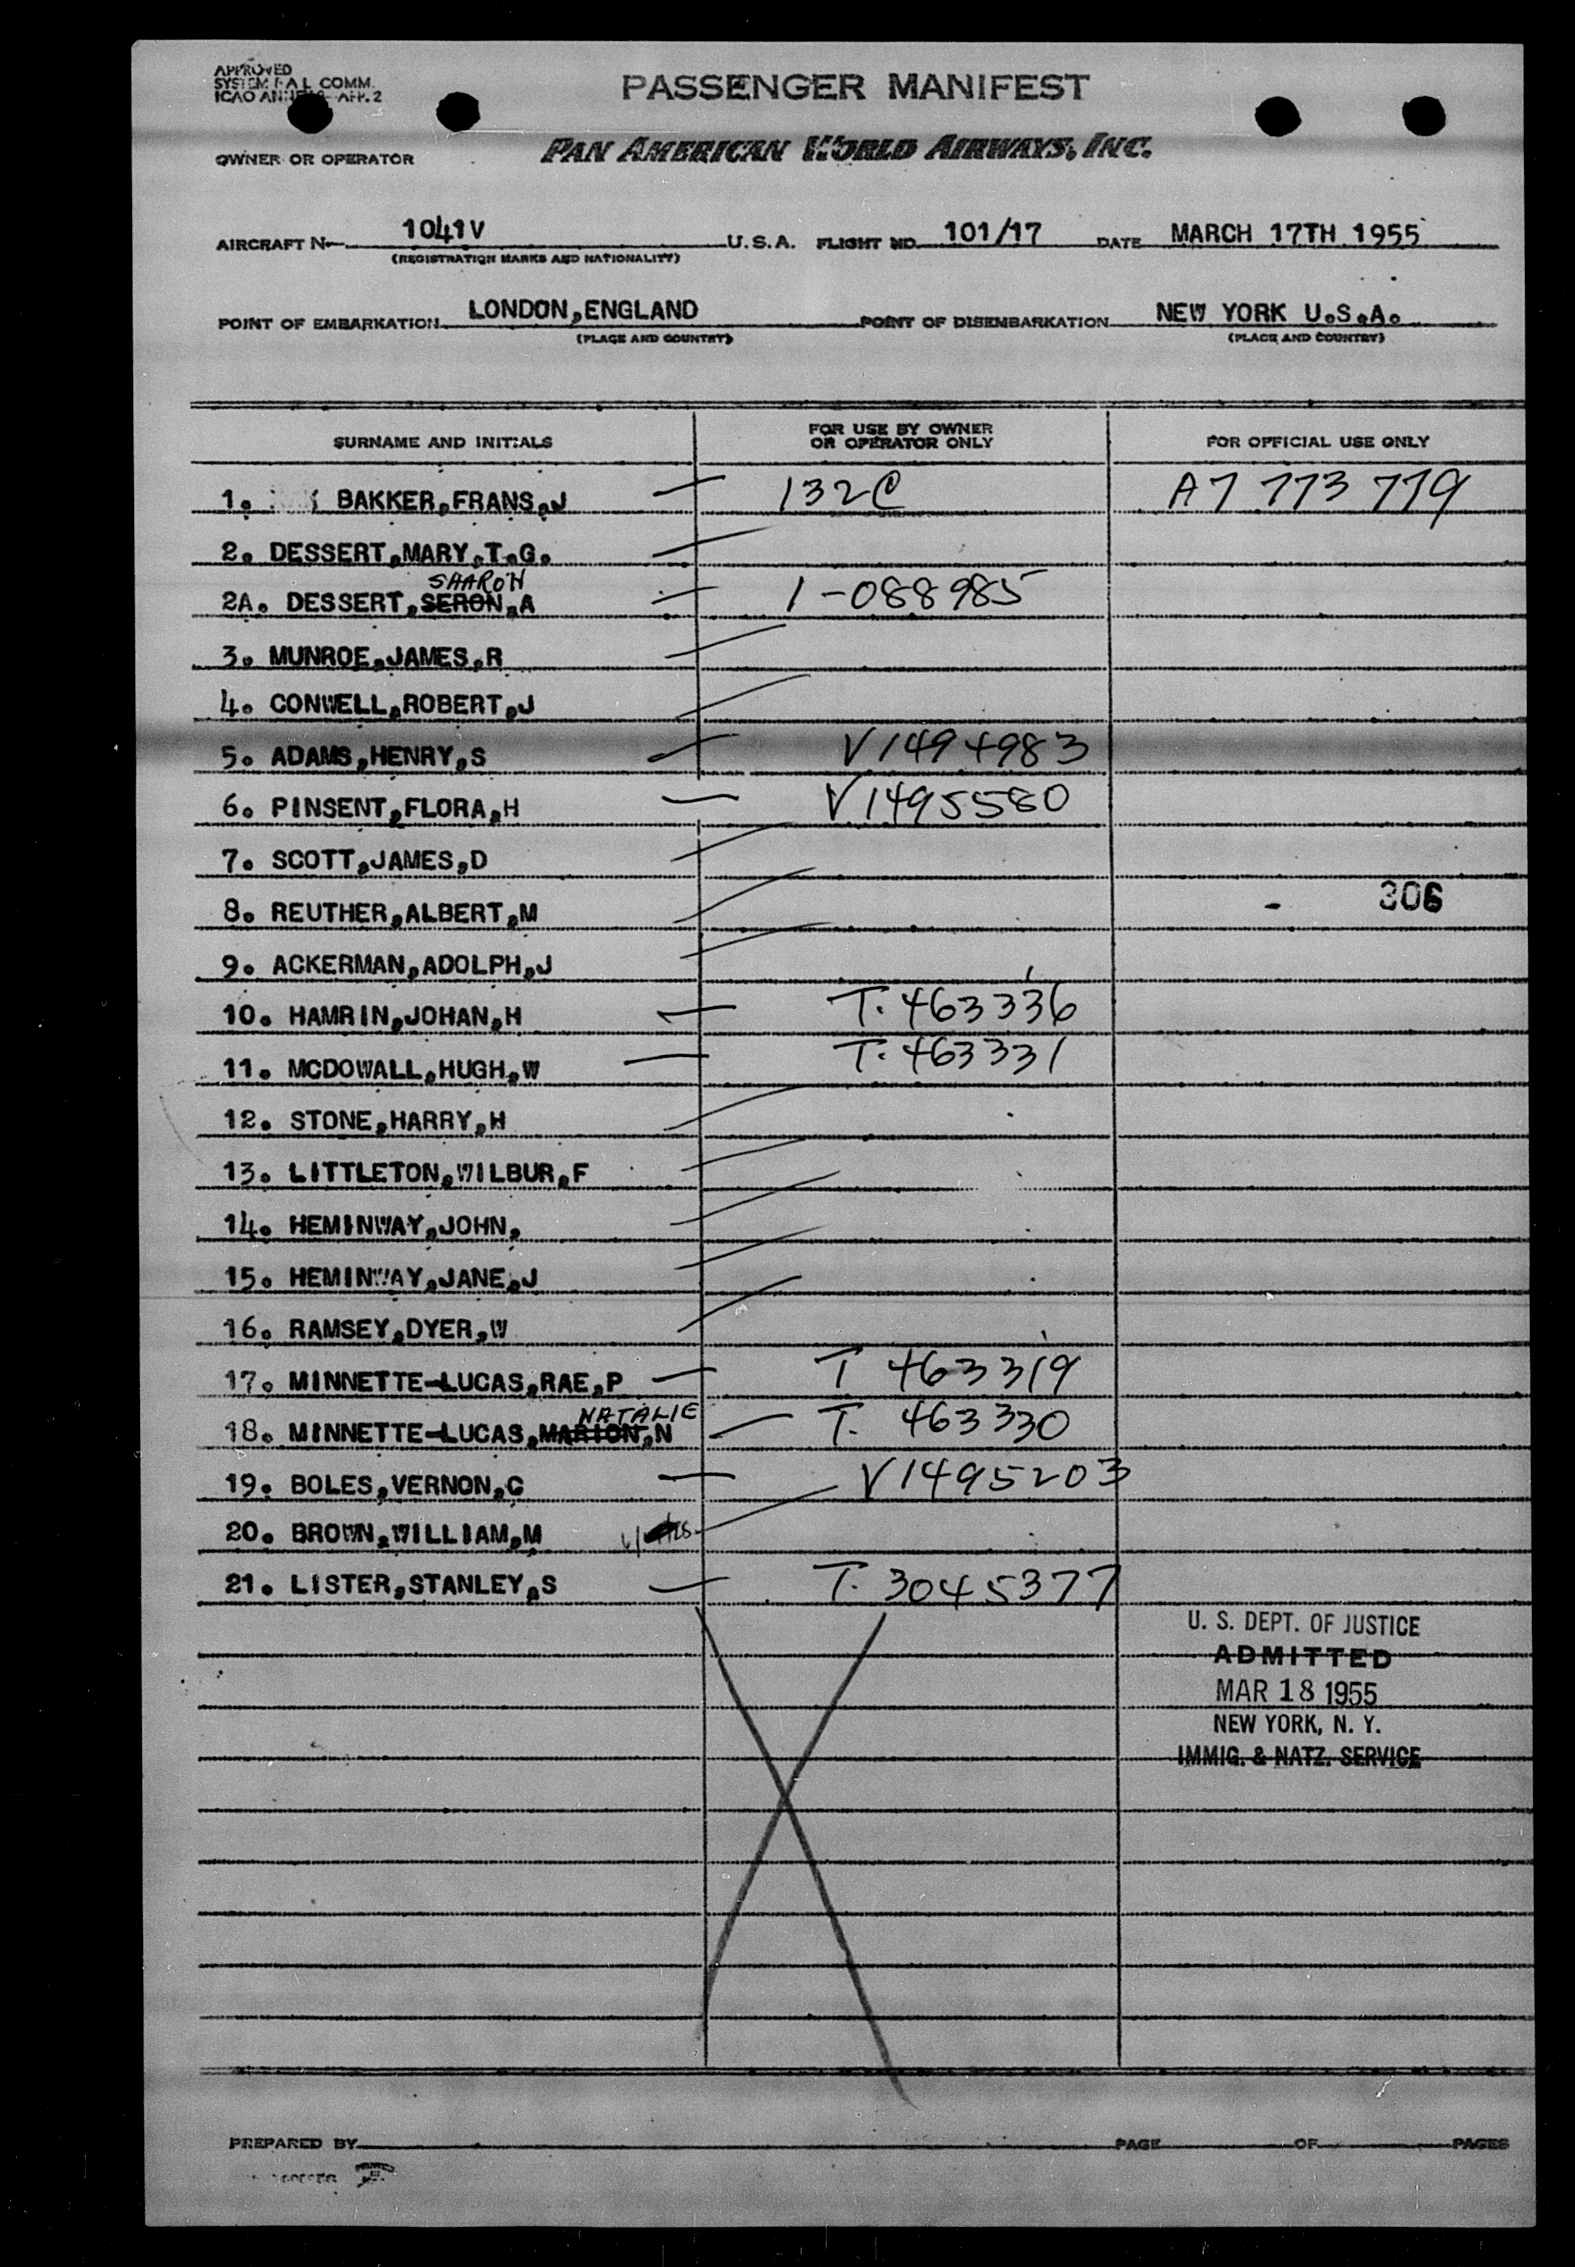 APPROVED
SYSTEM F A L COMM.
ICAO ANNEX 9 APP. 2
PASSENGER MANIFEST
OWNER OR OPERATOR PAN AMERICAN WORLD AIRWAYS, INC.
AIRCRAFT No 1041V U.S.A. FLIGHT NO. 101/17 DATE MARCH 17TH 1955
(REGISTRATION MARKS AND NATIONALITY)
POINT OF EMBARKATION LONDON,ENGLAND POINT OF DISEMBARKATION NEW YORK U.S.A.
(PLACE AND COUNTRY) (PLACE AND COUNTRY)
SURNAME AND INITIALS FOR USE BY OWNER OR OPERATOR ONLY FOR OFFICIAL USE ONLY
1. BAKKER,FRANS,J 132C A7 773 779
2. DESSERT,MARY,T.G.
SHARON
2A. DESSERT,SERON,A 1-088985
3. MUNROE,JAMES,R
4. CONWELL,ROBERT,J
5. ADAMS,HENRY,S V1494983
6. PINSENT,FLORA,H V1495580
7. SCOTT,JAMES,D
8. REUTHER,ALBERT,M - 306
9. ACKERMAN,ADOLPH,J
10. HAMRIN,JOHAN,H T. 463336
11. MCDOWALL,HUGH,W T. 463331
12. STONE,HARRY,H
13. LITTLETON,WILBUR,F
14. HEMINWAY,JOHN,
15. HEMINWAY,JANE,J
16. RAMSEY,DYER,W
17. MINNETTE-LUCAS,RAE,P T 463319
NATALIE
18. MINNETTE-LUCAS,MARION,N T. 463330
19. BOLES,VERNON,C V1495203
20. BROWN,WILLIAM,M
21. LISTER,STANLEY,S T. 3045377
U. S. DEPT. OF JUSTICE
ADMITTED
MAR 18 1955
NEW YORK, N. Y.
IMMIG. & NATZ. SERVICE
PREPARED BY PAGE OF PAGES